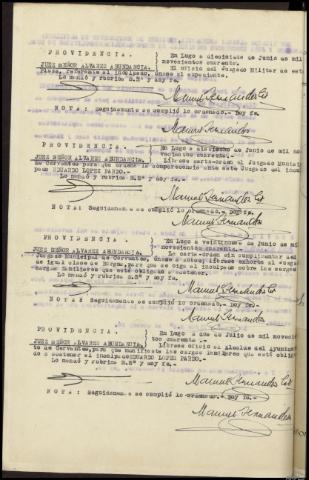 PROVIDENCIA. En Lugo a diecisiete de Junio de mil
novecientos cuarenta.
JUEZ SEÑOR ALVAREZ ABUNDANCIA. El oficio del Juzgado Militar de esta
Plaza, referente al inculpado, únase al expediente.
Lo mandó y rubrica S.Sª y doy fe.
Manuel Fernandez
NOTA: Seguidamente se cumplió lo ordenado.- Doy fe.
Manuel Fernandez
PROVIDENCIA. En Lugo a de Junio de mil
novecientos cuarenta.
JUEZ SEÑOR ALVAREZ ABUNDANCIA. Líbrese carta-orden al Juzgado Munici
de Cervantes para que ordene la comparecencia ante este Juzgado del incul
pado EDUARDO LOPEZ PARDO.-
Lo mandó y rubrica S.Sª y doy fe.
Manuel Fernandez
NOTA: Seguidamente se cumplió lo ordenado.- Doy fe.
Manuel Fernandez
PROVIDENCIA En Lugo a veintinueve de Junio de mil
novecientos cuarenta.
JUEZ SEÑOR ALVAREZ ABUNDANCIA. La carta-orden sin cumplimentar del
Juzgado Municipal de Cervantes, únase y líbrese exhorto al Juzgado
de igual clase de para que se oiga al inculpado sobre las cargas
cargas familiares que esté obligado a sostener.
Lo mandó y rubrica S.Sª y doy fe.
Manuel Fernandez
NOTA: Seguidamente se cumplió lo ordenado.- Doy fe.
Manuel Fernandez
PROVIDENCIA. En Lugo a dos de Julio de mil novecien
tos cuarenta.
JUEZ SEÑOR ALVAREZ ABUNDANCIA. Líbrese oficio al Alcalde del Ayunta
to de Cervantes, para que manifieste las cargas familiares que esté obliga
do a sostener el inculpado EDUARDO LOPEZ PARDO.-
Lo mandó y rubrica S.Sª y doy fe.
Manuel Fernandez
NOTA: Seguidamente se cumplió lo ordenado.- Doy fe.
Manuel Fernandez